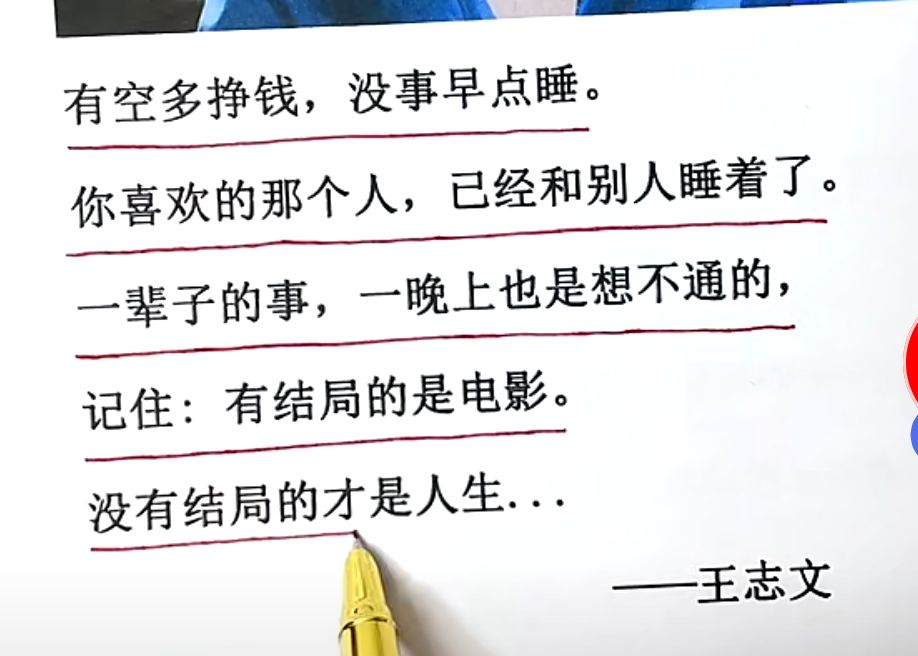 有空多挣钱，没事早点睡。
你喜欢的那个人，已经和别人睡着了。
一辈子的事，一晚上也是想不通的，
记住：有结局的是电影。
没有结局的才是人生...
——王志文